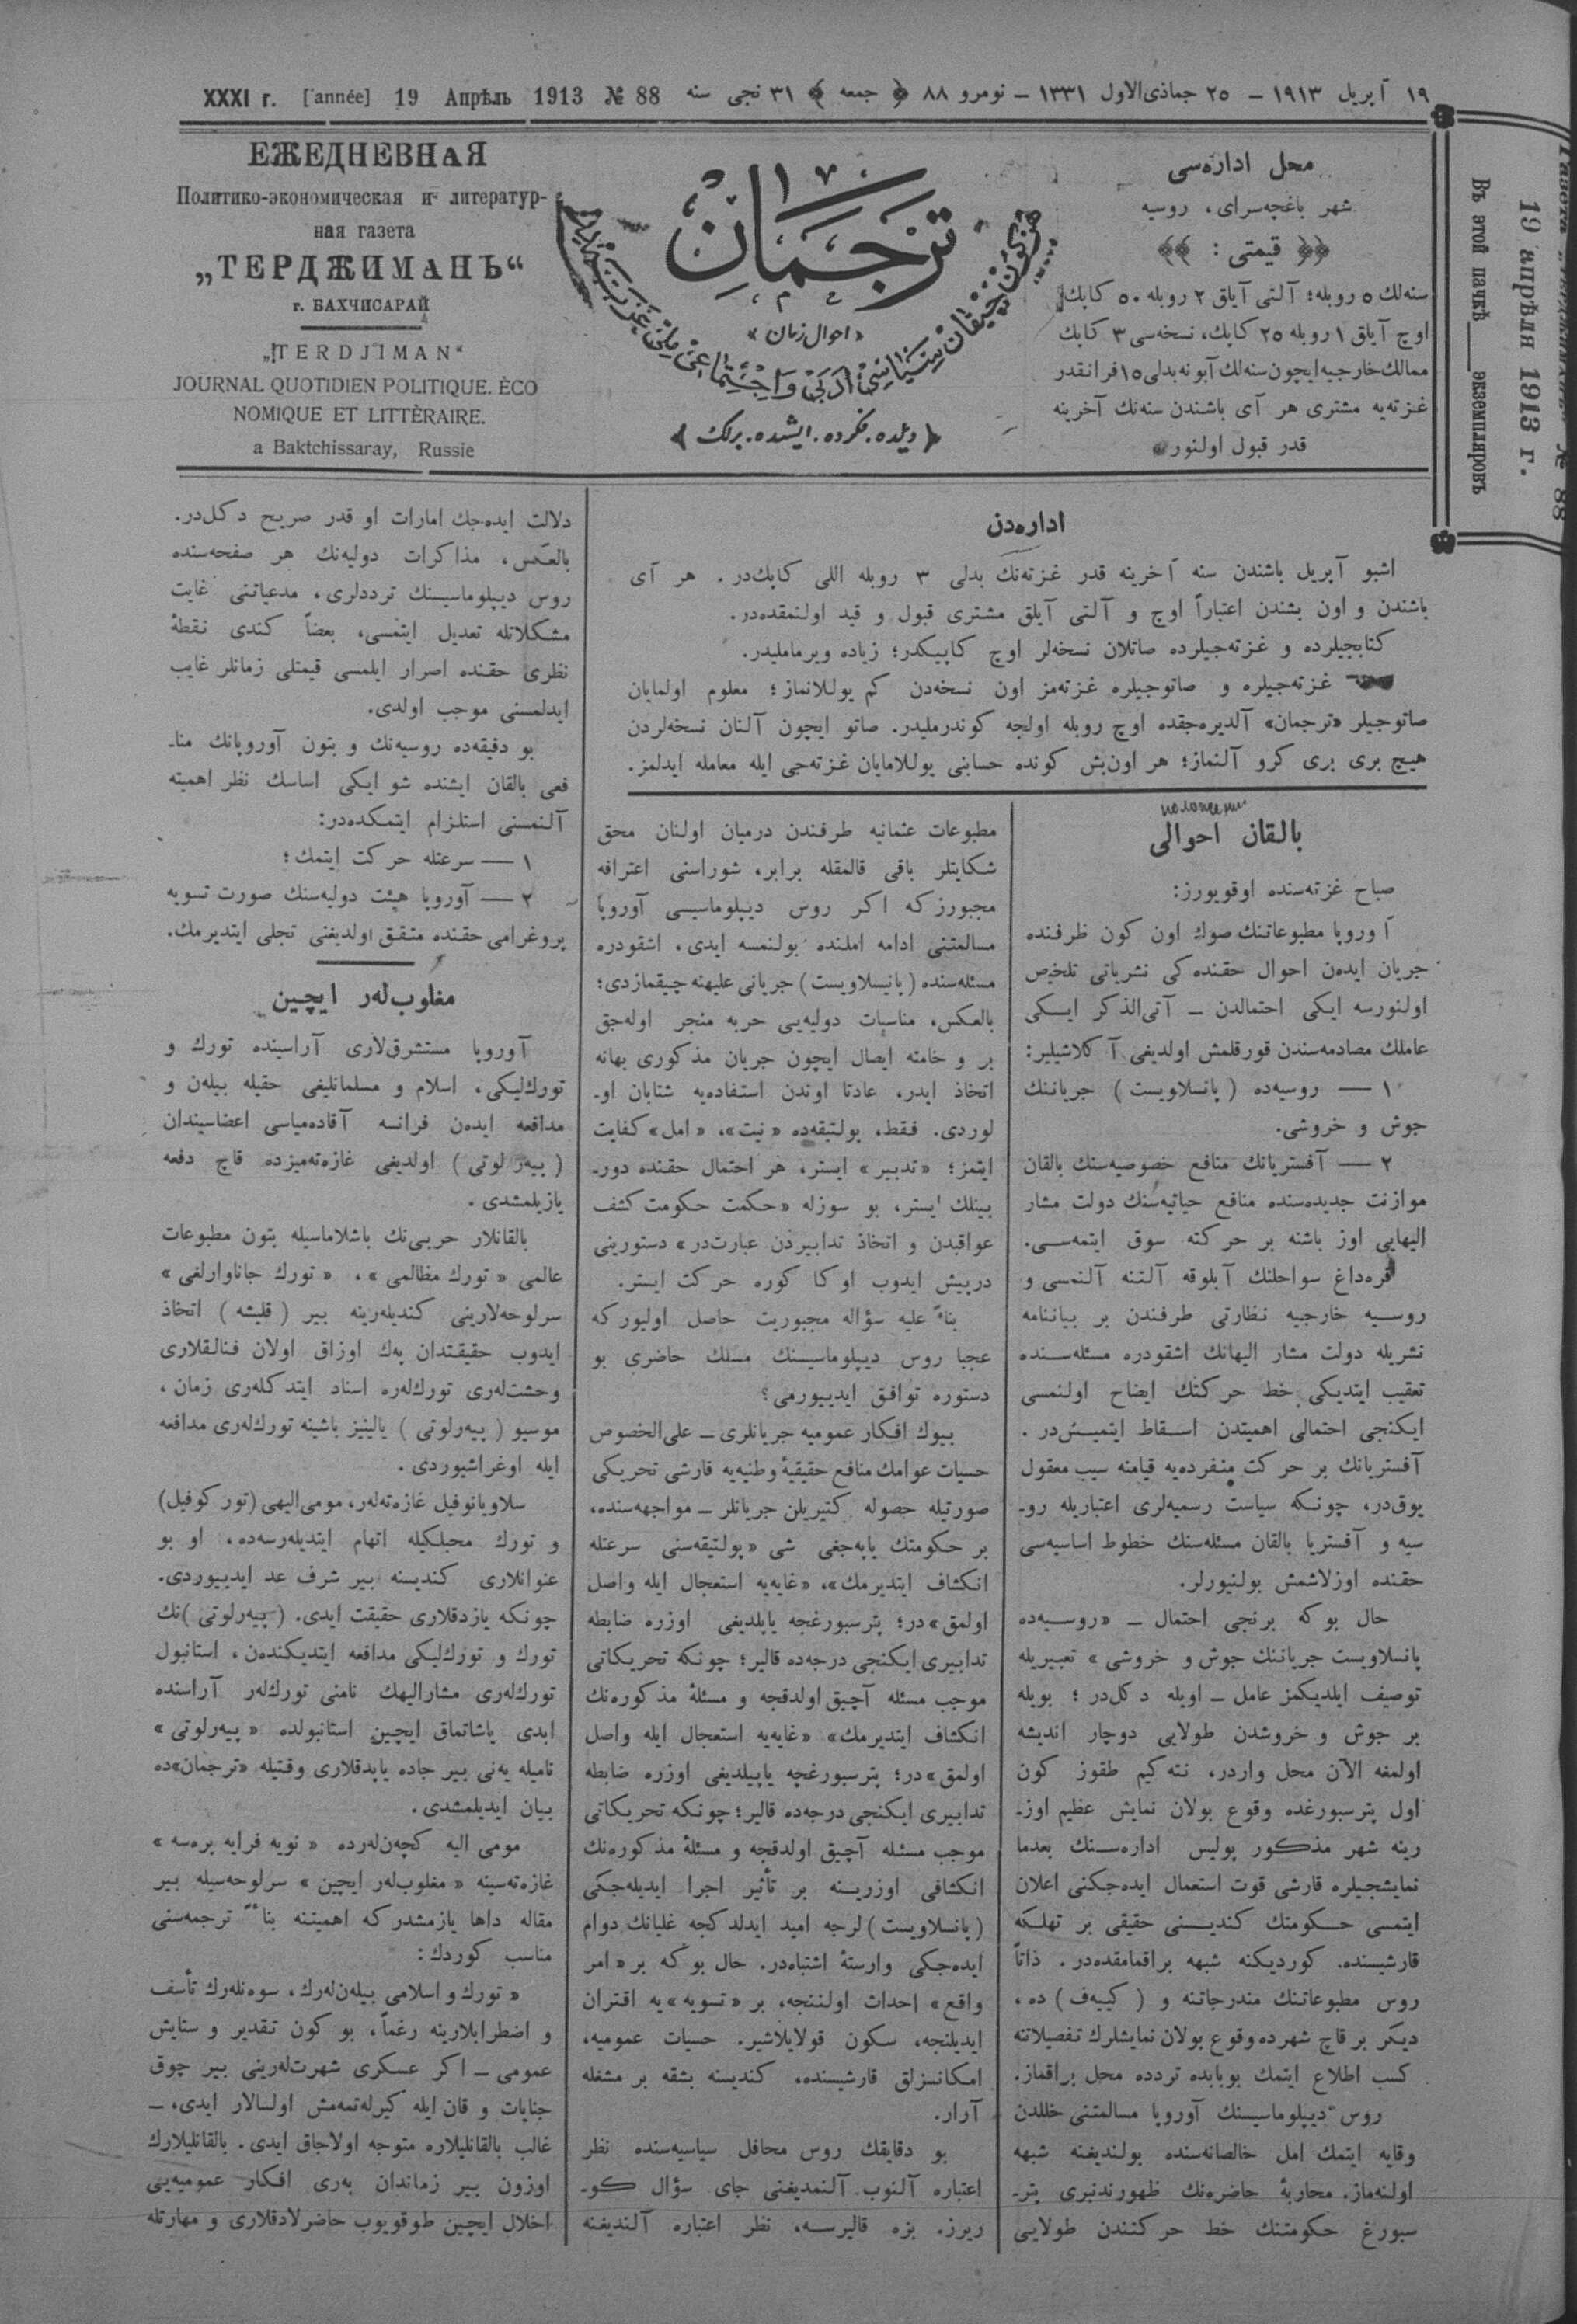 ١٩ آپریل ١٩١٣ – ٢٥ جماذی‌الاول ١٣٣١ – نومرو ٨٨ ﴿ جمعه ﴾ ٣١ نجی سنه
XXXI г. [année] 19 Апрѣль 1913 № 88
Въ этой пачкѣ ____ экземпляровъ
19 апрѣля 1913 г.
№ 88
محل اداره‌سی
شهر باغچه‌سرای، روسیه
﴿﴿ قیمتی: ﴾﴾
سنه‌لك ٥ روبله؛ آلتی آیلق ٢ روبله ٥٠ كاپك
اوچ آیلق ١ روبله ٢٥ كاپك، نسخه‌سی ٣ كاپك
ممالك خارجیه ایچون سنه‌لك آبونه بدلی ١٥ فرانقدر
غزته‌یه مشتری هر آی باشندن سنه‌نك آخرینه
قدر قبول اولنور
ترجمان
«احوال زمان»
هر كون چیقان سیاسی، ادبی و اجتماعی ملی غزته‌در
﴿ دیلده. فكرده. ایشده. برلك ﴾
ЕЖЕДНЕВНАЯ
Политико-экономическая и литератур-
ная газета
„ТЕРДЖИМАНЪ“
г. БАХЧИСАРАЙ
„TERDJIMAN“
JOURNAL QUOTIDIEN POLITIQUE. ÈCO
NOMIQUE ET LITTÈRAIRE.
a Baktchissaray, Russie
اداره‌دن
اشبو آپریل باشندن سنه آخرینه قدر غزته‌نك بدلی ٣ روبله اللی كاپك‌در. هر آی
باشندن و اون بشندن اعتباراً اوچ و آلتی آیلق مشتری قبول و قید اولنمقده‌در.
كتابجیلرده و غزته‌جیلرده صاتلان نسخه‌لر اوچ كاپیكدر؛ زیاده ویرماملیدر.
غزته‌جیلره و صاتوجیلره غزته‌مز اون نسخه‌دن كم یوللانماز؛ معلوم اولمایان
صاتوجیلر «ترجمان» آلدیره‌جقده اوچ روبله اولجه كوندرملیدر. صاتو ایچون آلنان نسخه‌لردن
هیچ بری بری كرو آلنماز؛ هر اون‌بش كونده حسابنی یوللامایان غزته‌جی ایله معامله ایدلمز.
بالقان احوالی
صباح غزته‌سنده اوقویورز:
آوروپا مطبوعاتنك صوك اون كون ظرفنده
جریان ایدن احوال حقنده كی نشریاتی تلخیص
اولنورسه ایكی احتمالدن – آتی‌الذكر ایكی
عاملك مصادمه‌سندن قورقلمش اولدیغی آكلاشیلیر:
١ — روسیه‌ده (پانسلاویست) جریاننك
جوش و خروشی.
٢ — آفستریانك منافع خصوصیه‌سنك بالقان
موازنت جدیده‌سنده منافع حیاتیه‌سنك دولت مشار
الیهایی اوز باشنه بر حركته سوق ایتمه‌سی.
قره‌داغ سواحلنك آبلوقه آلتنه آلنمسی و
روسیه خارجیه نظارتی طرفندن بر بیاننامه
نشریله دولت مشار الیهانك اشقودره مسئله‌سنده
تعقیب ایتدیكی خط حركتك ایضاح اولنمسی
ایكنجی احتمالی اهمیتدن اسقاط ایتمیش‌در.
آفستریانك بر حركت منفرده‌یه قیامنه سبب معقول
یوق‌در، چونكه سیاست رسمیه‌لری اعتباریله رو-
سیه و آفستریا بالقان مسئله‌سنك خطوط اساسیه‌سی
حقنده اوزلاشمش بولنیورلر.
حال بوكه برنجی احتمال – «روسیه‌ده
پانسلاویست جریاننك جوش و خروشی» تعبیریله
توصیف ایلدیكمز عامل – اویله دكل‌در؛ بویله
بر جوش و خروشدن طولایی دوچار اندیشه
اولمغه الآن محل واردر، نته‌كیم طقوز كون
اول پترسبورغده وقوع بولان نمایش عظیم اوز-
رینه شهر مذكور پولیس اداره‌سنك بعدما
نمایشجیلره قارشی قوت استعمال ایده‌جكنی اعلان
ایتمسی حكومتك كندیسنی حقیقی بر تهلكه
قارشیسنده كوردیكنه شبهه براقمامقده‌در. ذاتاً
روس مطبوعاتنك مندرجاتنه و (كییەف) ده،
دیكر بر قاچ شهرده وقوع بولان نمایشلرك تفصیلاتنه
كسب اطلاع ایتمك بوبابده تردده محل براقماز.
روس دیپلوماسیسنك آوروپا مسالمتنی خللدن
وقایه ایتمك امل خالصانه‌سنده بولندیغنه شبهه
اولنه‌ماز. محاربهٔ حاضره‌نك ظهورندنبری پتر-
سبورغ حكومتنك خط حركتندن طولایی
مطبوعات عثمانیه طرفندن درمیان اولنان محق
شكایتلر باقی قالمقله برابر، شوراسنی اعترافه
مجبورز كه اكر روس دیپلوماسیسی آوروپا
مسالمتنی ادامه املنده بولنمسه ایدی، اشقودره
مسئله‌سنده (پانیسلاویست) جریانی علیهنه چیقمازدی؛
بالعكس، مناسبات دولیه‌یی حربه منجر اوله‌جق
بر و خامته ایصال ایچون جریان مذكوری بهانه
اتخاذ ایدر، عادتا اوندن استفاده‌یه شتابان او-
لوردی. فقط، پولتیقه‌ده «نیت»، «امل» كفایت
ایتمز؛ «تدبیر» ایستر، هر احتمال حقنده دور-
بینلك ایستر، بو سوزله «حكمت حكومت كشف
عواقبدن و اتخاذ تدابیردن عبارت‌در» دستورینی
درپیش ایدوب اوكا كوره حركت ایستر.
بناءً علیه سؤاله مجبوریت حاصل اولیور كه
عجبا روس دیپلوماسیسنك مسلك حاضری بو
دستوره توافق ایدییورمی؟
بیوك افكار عمومیه جریانلری – علی‌الخصوص
حسیات عوامك منافع حقیقیهٔ وطنیه‌یه قارشی تحریكی
صورتیله حصوله كتیریلن جریانلر – مواجهه‌سنده،
بر حكومتك یاپه‌جغی شی «پولتیقه‌سنی سرعتله
انكشاف ایتدیرمك»، «غایه‌یه استعجال ایله واصل
اولمق» در؛ پترسبورغجه یاپلدیغی اوزره ضابطه
تدابیری ایكنجی درجه‌ده قالیر؛ چونكه تحریكاتی
موجب مسئله آچیق اولدقجه و مسئلهٔ مذكوره‌نك
انكشاف ایتدیرمك» «غایه‌یه استعجال ایله واصل
اولمق» در؛ پترسبورغجه یاپیلدیغی اوزره ضابطه
تدابیری ایكنجی درجه‌ده قالیر؛ چونكه تحریكاتی
موجب مسئله آچیق اولدقجه و مسئلهٔ مذكوره‌نك
انكشافی اوزرینه بر تأثیر اجرا ایدیله‌جكی
(پانسلاویست) لرجه امید ایدلدكجه غلیانك دوام
ایده‌جكی وارستهٔ اشتباه‌در. حال بوكه بر «امر
واقع» احداث اولننجه، بر «تسویه»یه اقتران
ایدیلنجه، سكون قولایلاشیر. حسیات عمومیه،
امكانسزلق قارشیسنده، كندیسنه بشقه بر مشغله
آرار.
بو دقایقك روس محافل سیاسیه‌سنده نظر
اعتباره آلنوب آلنمدیغنی جای سؤال كو-
ریرز. بزه قالیرسه، نظر اعتباره آلندیغنه
دلالت ایده‌جك امارات او قدر صریح دكل‌در.
بالعكس، مذاكرات دولیه‌نك هر صفحه‌سنده
روس دیپلوماسیسنك ترددلری، مدعیاتنی غایت
مشكلاتله تعدیل ایتمسی، بعضاً كندی نقطهٔ
نظری حقنده اصرار ایلمسی قیمتلی زمانلر غایب
ایدلمسنی موجب اولدی.
بو دقیقه‌ده روسیه‌نك و بتون آوروپانك منا-
فعی بالقان ایشنده شو ایكی اساسك نظر اهمیته
آلنمسنی استلزام ایتمكده‌در:
١ — سرعتله حركت ایتمك؛
٢ — آوروپا هیئت دولیه‌سنك صورت تسویه
پروغرامی حقنده متفق اولدیغنی تجلی ایتدیرمك.
مغلوب‌لەر ایچین
آوروپا مستشرق‌لاری آراسینده تورك و
تورك‌لیكی، اسلام و مسلمانلیغی حقیله بیله‌ن و
مدافعه ایدەن فرانسه آقاده‌میاسی اعضاسیندان
(پیەر لوتی) اولدیغی غازەتەمیزده قاچ دفعه
یازیلمشدی.
بالقانلار حربی‌نك باشلاماسیله بتون مطبوعات
عالمی «تورك مظالمی»، «تورك جاناوارلغی»
سرلوحه‌لارینی كندیلەرینه بیر (قلیشه) اتخاذ
ایدوب حقیقتدان پەك اوزاق اولان فنالقلاری
وحشت‌لەری تورك‌لەره اسناد ایتدكلەری زمان،
موسیو (پیەرلوتی) یالیڭیز باشینه تورك‌لەری مدافعه
ایله اوغراشیوردی.
سلاویانوفیل غازەتەلەر، مومی‌الیهی (توركوفیل)
و تورك محبلكیله اتهام ایتدیلەرسەده، او بو
عنوانلاری كندیسنه بیر شرف عد ایدییوردی.
چونكه یازدقلاری حقیقت ایدی. (پیەرلوتی)نك
تورك و تورك‌لیكی مدافعه ایتدیكندەن، استانبول
تورك‌لەری مشارالیهك نامنی تورك‌لەر آراسنده
ابدی یاشاتماق ایچین استانبولده «پیەرلوتی»
نامیله یەنی بیر جاده یاپدقلاری وقتیله «ترجمان»ده
بیان ایدیلمشدی.
مومی الیه كچەن‌لەرده «نویه فرایه پرەسه»
غازەتەسینه «مغلوب‌لەر ایچین» سرلوحه‌سیله بیر
مقاله داها یازمشدر كه اهمیتنه بناءً ترجمه‌سنی
مناسب كوردك:
«تورك و اسلامی بیلەن‌لەرك، سوەنلەرك تأسف
و اضطرابلارینه رغماً، بو كون تقدیر و ستایش
عمومی – اكر عسكری شهرت‌لەرینی بیر چوق
جنایات و قان ایله كیرلەتمەمش اولسالار ایدی، –
غالب بالقانلیلاره متوجه اولاجاق ایدی. بالقانلیلارك
اوزون بیر زماندان بەری افكار عمومیه‌یی
اخلال ایچین طوقویوب حاضرلادقلاری و مهارتله